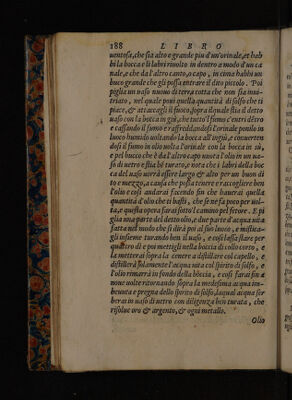 188 LIBRO
uentosa, che sia alto e grande piu d'un'orinale, et hab
bi la bocca e li labri riuolto in dentro a modo d'un ca
nale, e che da l'altro canto, o capo, in cima habbi un
buco grande che gli possa entrare il dito piccolo. Poi
piglia un uaso nuouo di terra cotta che non sia inue
triato, nel quale poni quella quantità di solfo che ti
piace, & attaccagli il fuoco, sopra il quale stia il detto
uaso con la bocca in giù, che tutto'l fumo c'entri dētro
e cassando il fumo e raffreddandosi l'orinale ponilo in
luogo humido uoltando la bocca all'ingiù, e conuerten
dosi il fumo in olio uolta l'orinale con la bocca in sù,
e pel bucco che è da l'altro capo uuota l'olio in un ua-
so di uetro e stia bē turato, e nota che i labri della boc
ca del uaso uorrà essere largo & alto per un buon di
to e mezzo, a causa che possa tenere e raccogliere ben
l'olio e così andarai facendo sin che hauerai quella
quantità d'olio che ti basti, che se ne fa poco per uol-
ta, e questa opera farai sotto'l camino pel fetore. E pi
glia una parte del detto olio, e due parte d'acqua uita
fatta nel modo che si dirà poi al suo luoco, e mistica-
gli insieme turando ben il uaso, e così lassa stare per
quattro dì e poi mettegli nella boccia di collo corto, e
la metterai sopra la cenere a distillare col capello, e
distillerà solamente l'acqua uita col spirito di solfo, e
l'olio rimarrà in fondo della boccia, e così farai sin a
noue uolte ritornando sopra la medesima acqua im-
beuuta e pregna dello spirito di solfo, laqual acqua ser
berai in uaso di uetro con diligenza ben turata, che
risolue oro & argento, & ogni metallo.
Olio